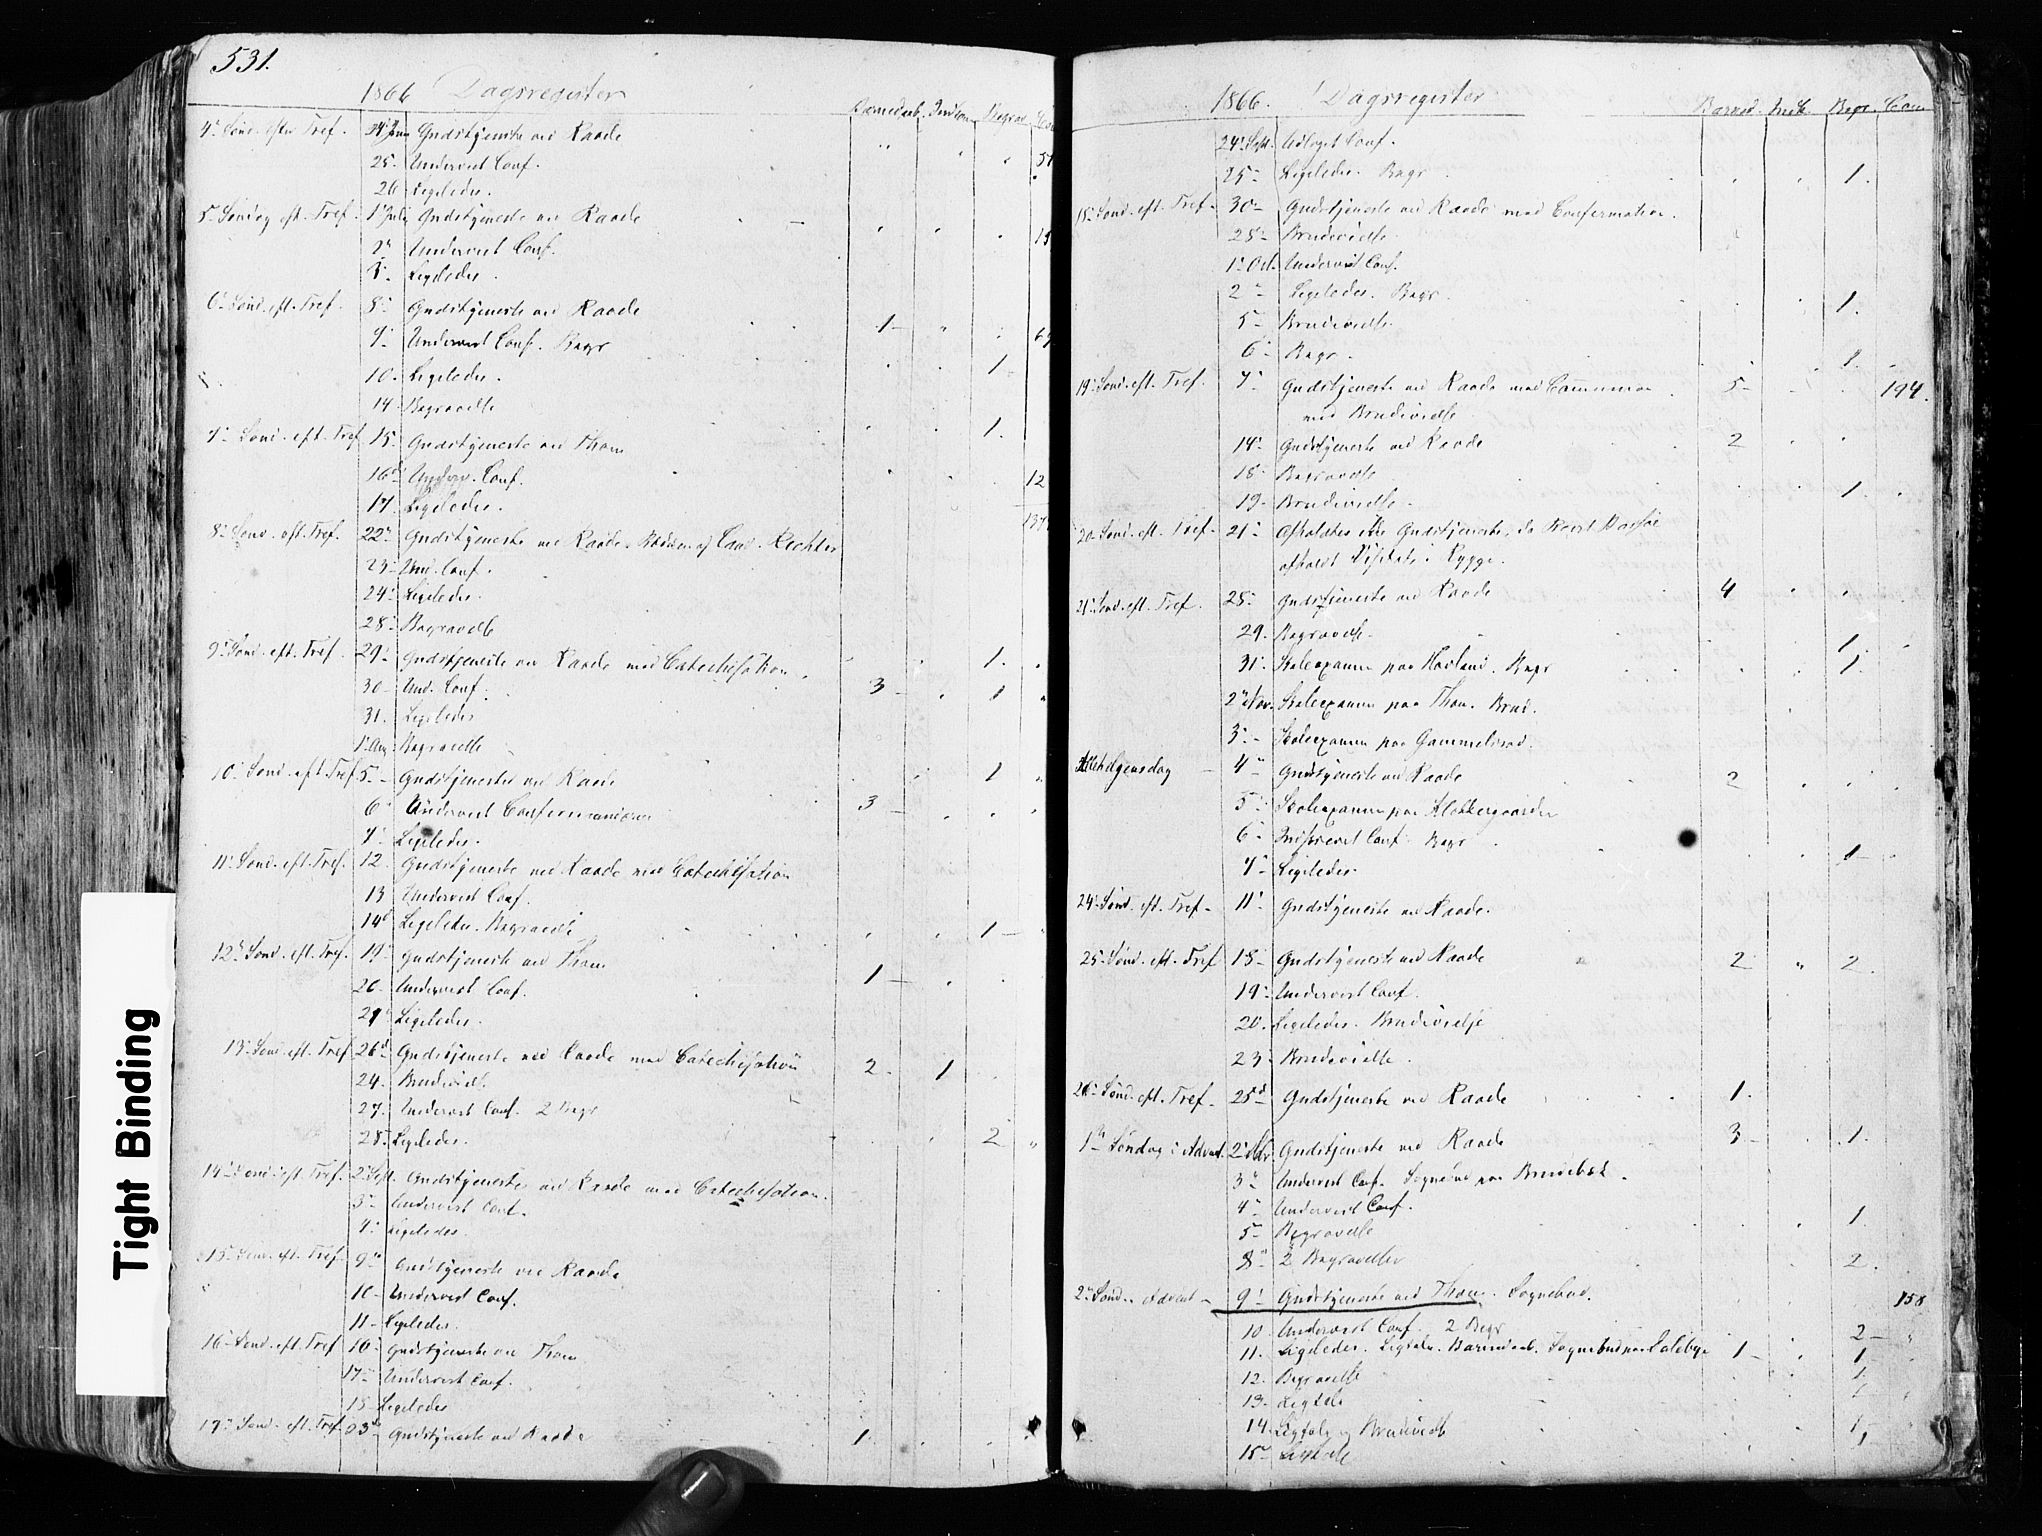 531.
1866 Dagsregister
Barnedaab. Introd. Begrav.
4' Sönd. efter Tref. 24' Juni Gudstjeneste ved Raade
25. Undervist Conf. 51
26 Ligeledes.
5' Söndag eft. Tref. 1' Juli Gudstjeneste ved Raade
2' Undervist Conf. 15
3' Ligeledes.
6' Sönd. eft. Tref. 8' Gudstjeneste ved Raade
9' Undervist Conf. Begr 1
10. Ligeledes. 1
14 Begravelse
7' Sönd. eft. Tref 15. Gudstjeneste ved Thom 1.
16' Underv. Conf. 12
17. Ligeledes.
8' Sönd. eft. Tref. 22' Gudstjeneste ved Raade. af Cand. Richter
23' Und. Conf.
24' Ligeledes.
28' Begravelse
9' Sönd. eft. Tref. 29' Gudstjeneste ved Raade med Catechisation 1.
30- Und. Conf. 3 1
31. Ligeledes
1' Aug Begravelse
10' Sönd. eft Tref 5. Gudstjeneste ved Raade 1
6' Undervist Confirmanderne 3
7' Ligeledes.
11' Sönd. eft. Tref. 12. Gudstjeneste ved Raade med Catechisation
13 Undervist Conf.
14' Ligeledes. Begravelse 1
12' Sönd. eft. Tref. 19' Gudstjeneste ved Thom
20- Undervist Conf. 1
21' Ligeledes.
13' Sönd. eft. Tref 26' Gudstjeneste ved Raade med Catechisation 2. 1
24. Brudevielse
27. Undervist Conf. 2 Begr
28. Ligeledes. 2
14' Sönd. eft. Tref. 2' Sept. Gudstjeneste ved Raade med Catechisation.
3' Undervist Conf.
4' Ligeledes.
15' Sönd. eft. Tref. 9' Gudstjeneste ved Raade
10- Undervist Conf.
11- Ligeledes.
16' Sönd. eft. Tref 16' Gudstjeneste ved Thom
17' Undervist Conf.
18 Ligeledes
17' Sönd. eft. Tref. 23' Gudstjeneste ved Raade 1
1866. Dagsregister
Barned. Intr. Begr. Com
24' Sept. Conf.
25' Ligeledes. Begr 1.
18' Sönd. eft. Tref. 30- Gudstjeneste ved Raade med Confirmation.
28' Brudevielse
1' Oct. Undervist Conf.
2' Ligeledes. Begr. 1.
5' Brudevielse.
6' Begr. 1.
19' Sönd. eft. Tref. 7' Gudstjeneste ved Raade med Communion 5 194.
med Brudevielse
14' Gudstjeneste ved Raade 2
18' Begravelse 1.
19' Brudevielse.
20' Sönd. eft. Tref. 21' Afholdtes ikke Gudstjeneste, da
afholdt Visitats i Rygge.
21' Sönd. eft. Tref. 28' Gudstjeneste ved Raade 4
29. Begravelse. 1.
31' Skoleexamen paa Havland. Begr 1.
2' Nov. Skoleexamen paa Thom. Brud.
3' Skoleexamen paa Gammelsrod.
Allehelgensdag 4' Gudstjeneste ved Raade 2
5' Skoleexamen paa Klokkergaarden
6' Undervist Conf. Begr. 1
7' Ligeledes.
24' Sönd. eft. Tref. 11' Gudstjeneste ved Raade.
25' Sönd. eft. Tref 18' Gudstjeneste ved Raade 2 2
19' Undervist Conf.
20. Ligeledes. Brudevielse
23' Brudevielse.
26' Sönd. eft. Tref. 25' Gudstjeneste ved Raade 1.
1' Söndag i Advent. 2' Dec Gudstjeneste ved Raade 3 1.
3' Undervist Conf. Sognebud paa
4' Undervist Conf.
5' Begravelse 1.
8' 2 Begravelser 2.
2' Sönd. Advent 9' Gudstjeneste ved Thom. Sognebud. 158
10. Undervist Conf. 2 Begr 2
11. Ligeledes. Ligtale. Barnedaab. Sognebud paa 1 1
12. Begravelse 1.
13. Ligtale 1
14 Ligtale og Brudevielse 1
15' Ligtale 1
Tight Binding